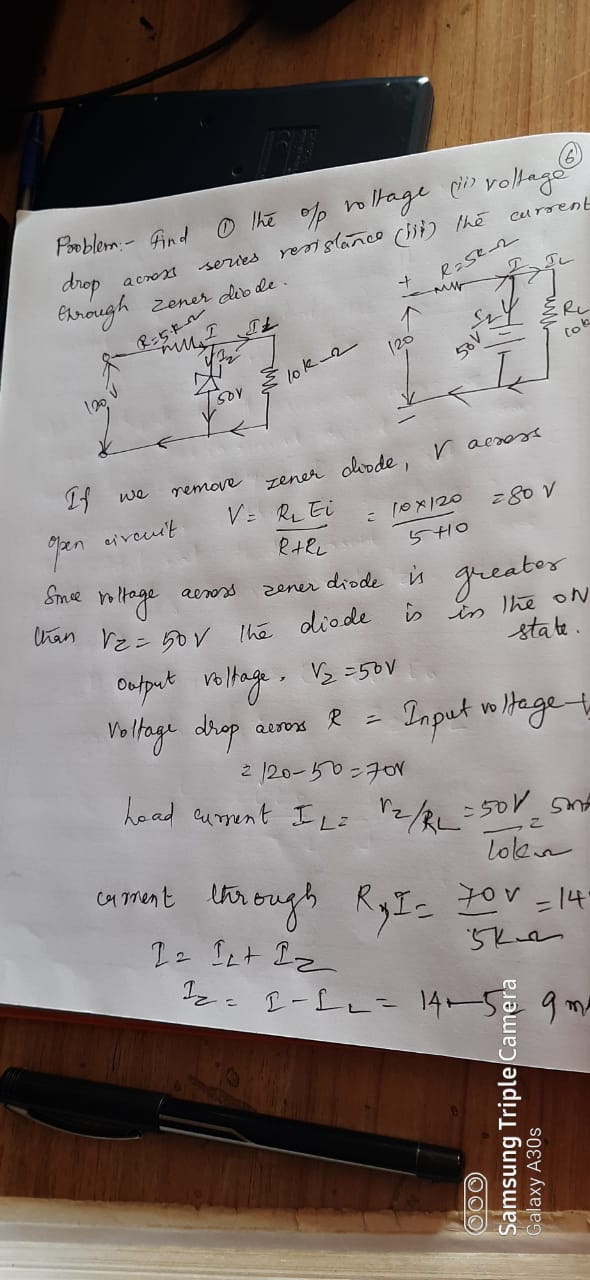 6
Problem:- Find ① the o/p voltage (ii) voltage
drop across series resistance (iii) the current
through zener diode.
R=5kΩ I IL
120V
Iz
50V
10kΩ
+ R=5kΩ I IL
120
Iz
50V
RL
10k
If we remove zener diode, V across
open circuit V = RL Ei / R+RL = 10×120 / 5+10 = 80 V
Since voltage across zener diode is greater
than Vz = 50V the diode is in the ON
state.
Output voltage, Vz = 50V
Voltage drop across R = Input voltage -
= 120-50 = 70V
Load current IL = Vz/RL = 50V / 10kΩ = 5m
current through R, I = 70V / 5kΩ = 14
I = IL + Iz
Iz = I - IL = 14 - 5 = 9 m
Samsung Triple Camera
Galaxy A30s